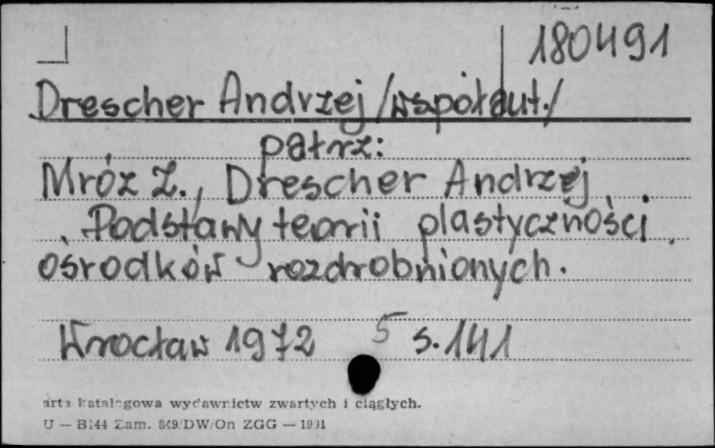 180491
Drescher Andrzej /współaut./
patrz:
Mróz Z., Drescher Andrzej
Podstawy teorii plastyczności
ośrodków rozdrobnionych.
Wrocław 1972 5 s. 141
arta katalogowa wydawnictw zwartych i ciągłych.
U — B144 Zam. 849/DW/On ZGG — 1991